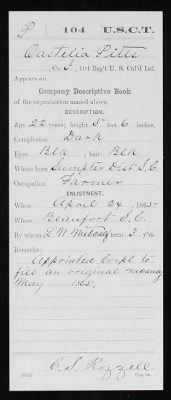 P 104 U.S.C.T.
Castelia Pitts
Co. I, 104 Reg't U. S. Col'd Inf.
Appears on
Company Descriptive Book
of the organization named above.
DESCRIPTION.
Age 22 years; height 5 feet 6 inches.
Complexion Dark
Eyes Blk ; hair Blk
Where born Sumpter Dist S.C.
Occupation Farmer
ENLISTMENT.
When April 24, 1865.
Where Beaufort S.C.
By whom L W Metcalf term 3 y'rs.
Remarks:
Appointed Corpl to
fill an original vacancy
May 1865.
C. S. Rozzell
Copyist.